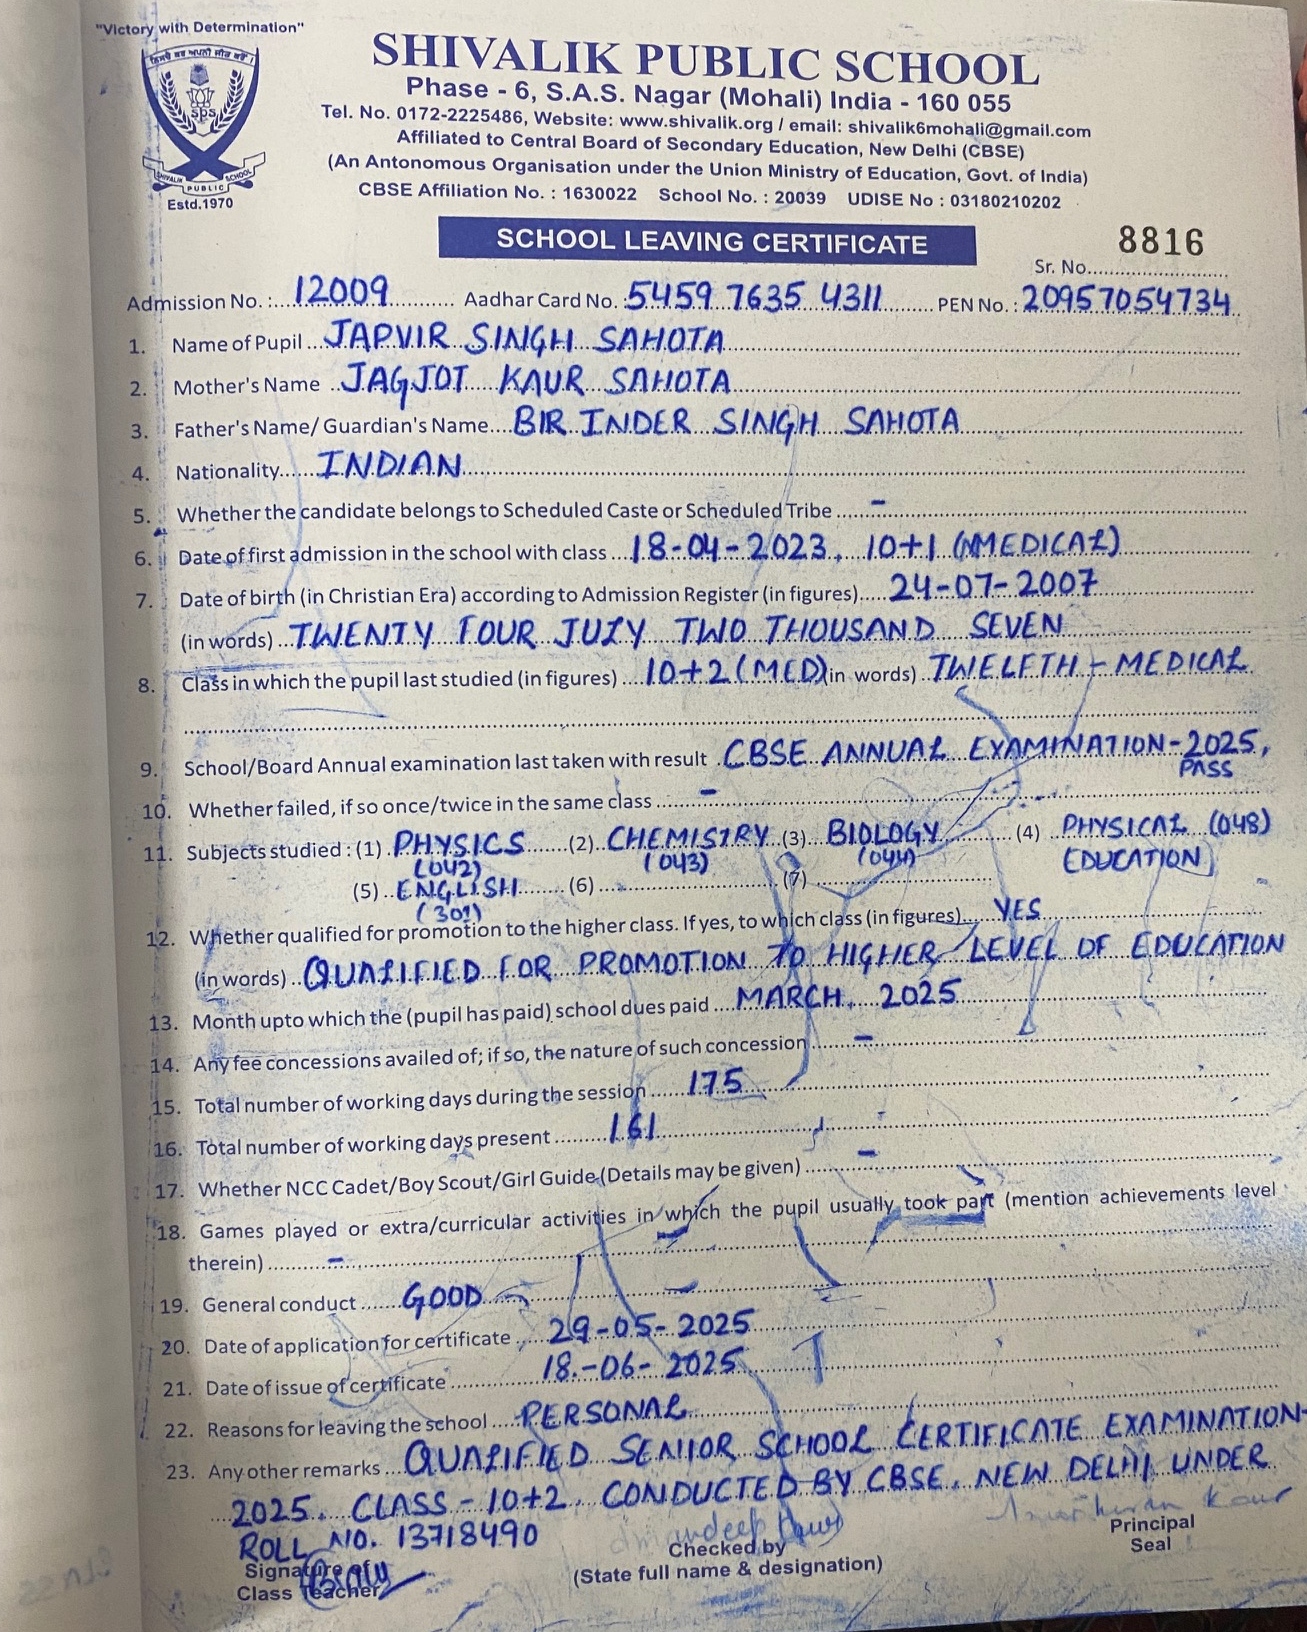 "Victory with Determination"
SHIVALIK PUBLIC SCHOOL
Phase - 6, S.A.S. Nagar (Mohali) India - 160 055
Tel. No. 0172-2225486, Website: www.shivalik.org / email: shivalik6mohali@gmail.com
Affiliated to Central Board of Secondary Education, New Delhi (CBSE)
(An Antonomous Organisation under the Union Ministry of Education, Govt. of India)
CBSE Affiliation No. : 1630022 School No. : 20039 UDISE No : 03180210202
sps
SHIVALIK PUBLIC SCHOOL
Estd.1970
SCHOOL LEAVING CERTIFICATE
8816
Sr. No.
Admission No. : 12009 Aadhar Card No. : 5459 7635 4311 PEN No. : 20957054734
1. Name of Pupil JAPVIR SINGH SAHOTA
2. Mother's Name JAGJOT KAUR SAHOTA
3. Father's Name/ Guardian's Name BIR INDER SINGH SAHOTA
4. Nationality INDIAN
5. Whether the candidate belongs to Scheduled Caste or Scheduled Tribe -
6. Date of first admission in the school with class 18-04-2023, 10+1 (NMEDICAL)
7. Date of birth (in Christian Era) according to Admission Register (in figures) 24-07-2007
(in words) TWENTY FOUR JULY TWO THOUSAND SEVEN
8. Class in which the pupil last studied (in figures) 10+2 (MED) in words) TWELFTH - MEDICAL
9. School/Board Annual examination last taken with result CBSE ANNUAL EXAMINATION-2025,
PASS
10. Whether failed, if so once/twice in the same class -
11. Subjects studied : (1) PHYSICS (2) CHEMISTRY (3) BIOLOGY (4) PHYSICAL (048)
(042) (043) (044) EDUCATION
(5) ENGLISH (6) (7)
(301)
12. Whether qualified for promotion to the higher class. If yes, to which class (in figures) YES
(in words) QUALIFIED FOR PROMOTION TO HIGHER LEVEL OF EDUCATION
13. Month upto which the (pupil has paid) school dues paid MARCH, 2025
14. Any fee concessions availed of; if so, the nature of such concession -
15. Total number of working days during the session 175
16. Total number of working days present 161
17. Whether NCC Cadet/Boy Scout/Girl Guide (Details may be given) -
18. Games played or extra/curricular activities in which the pupil usually took part (mention achievements level
therein) -
19. General conduct GOOD
20. Date of application for certificate 29-05-2025
21. Date of issue of certificate 18-06-2025
22. Reasons for leaving the school PERSONAL
23. Any other remarks QUALIFIED SENIOR SCHOOL CERTIFICATE EXAMINATION-
2025, CLASS - 10+2, CONDUCTED BY CBSE, NEW DELHI, UNDER
ROLL NO. 13718490
Signature of
Class Teacher
Checked by
(State full name & designation)
Principal
Seal